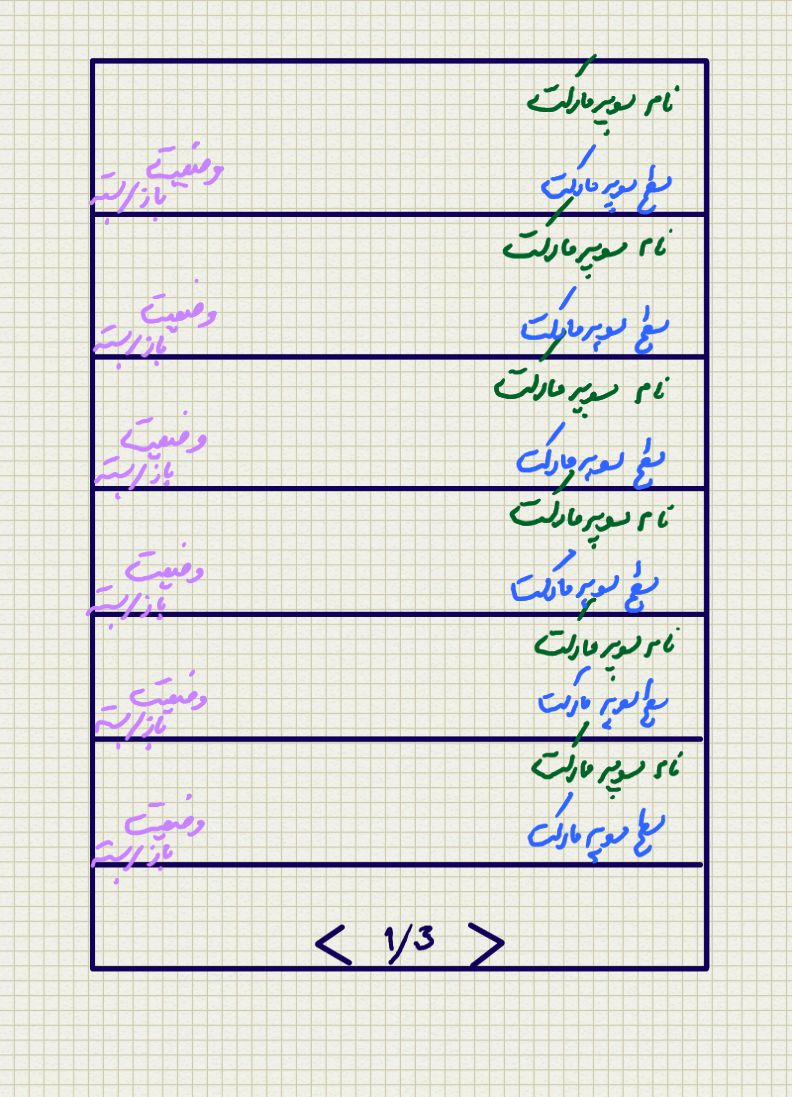 نام سوپرمارکت
سطح سوپرمارکت
وضعیت
باز/بسته
نام سوپرمارکت
سطح سوپرمارکت
وضعیت
باز/بسته
نام سوپرمارکت
سطح سوپرمارکت
وضعیت
باز/بسته
نام سوپرمارکت
سطح سوپرمارکت
وضعیت
باز/بسته
نام سوپرمارکت
سطح سوپرمارکت
وضعیت
باز/بسته
نام سوپرمارکت
سطح سوپرمارکت
وضعیت
باز/بسته
< 1/3 >